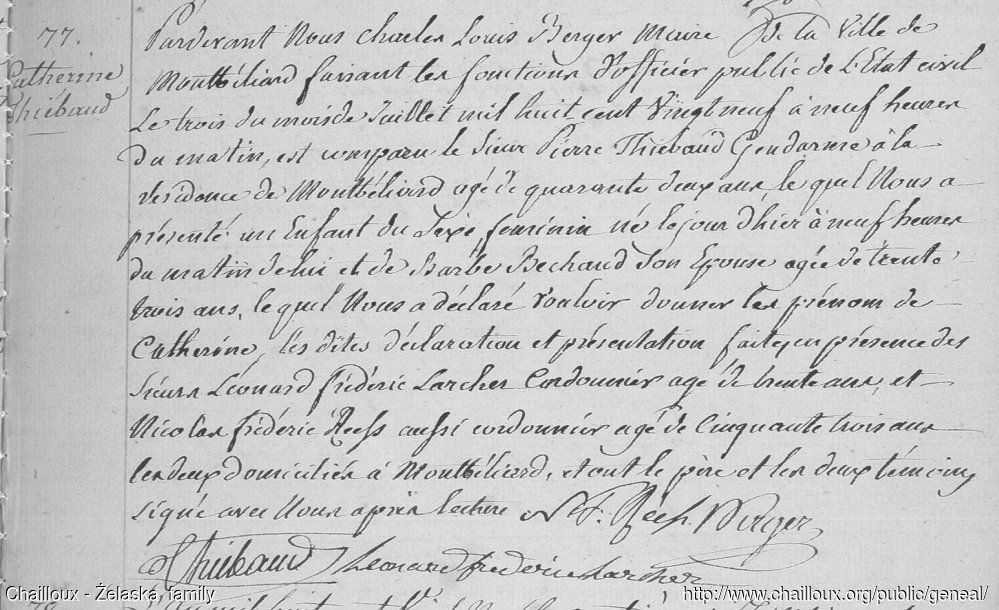 77.
Catherine
Thiébaud
Pardevant Nous Charles Louis Berger Maire de la Ville de
Montbéliard faisant les fonctions d'officier public de l'Etat civil
Le trois du mois de Juillet mil huit cent Vingt neuf à neuf heures
du matin, est comparu le Sieur Pierre Thiébaud Gendarme à la
résidence de Montbéliard agé de quarante deux ans, le quel Nous a
présenté un Enfant du Sexe féminin né le jour d'hier à neuf heures
du matin de lui et de Barbe Bechaud Son Epouse agée de trente
trois ans, le quel Nous a déclaré Vouloir donner les prénom de
Catherine, les dites déclaration et présentation faites en présence des
Sieurs Léonard frédéric Larcher Cordonnier agé de trente ans, et
Nicolas frédéric Rees aussi cordonnier agé de Cinquante trois ans
les deux domiciliés à Montbéliard, et ont le père et les deux témoins
Signé avec Nous après lecture N. F. Rees. Berger
Thiebaud Leonard frederic Larcher
78.
Chailloux - Żelaska family
http://www.chailloux.org/public/geneal/